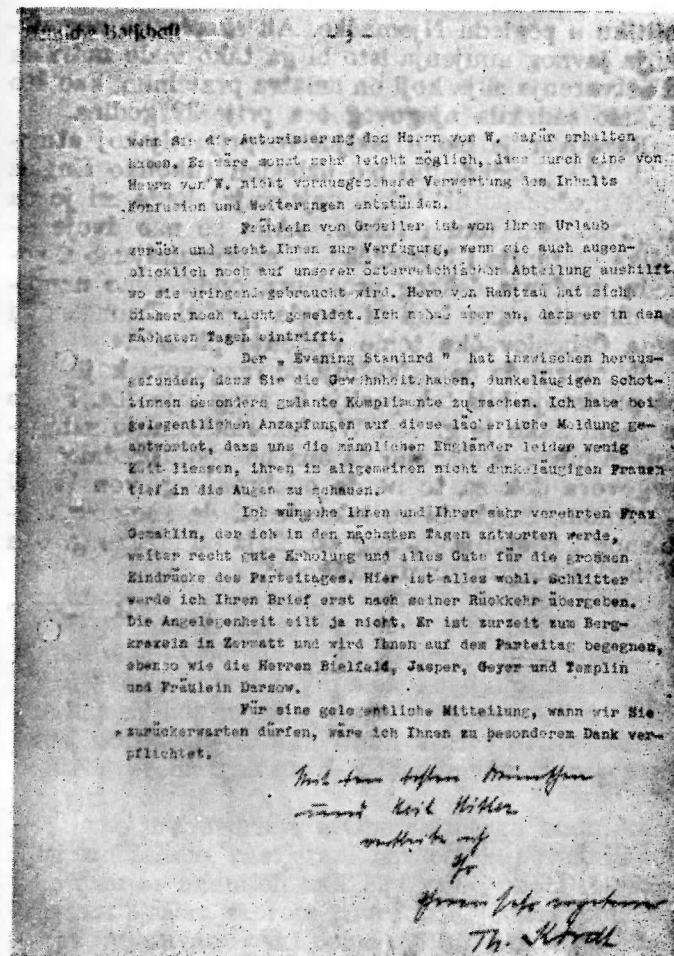 Deutsche Botschaft
- 2 -
wenn Sie die Autorisierung des Herrn von W. dafür erhalten
haben. Es wäre sonst sehr leicht möglich, dass durch eine von
Herrn von W. nicht vorausgesehene Verwertung des Inhalts
Konfusion und Weiterungen entstünden.
Fräulein von Groeller ist von ihrem Urlaub
zurück und steht Ihnen zur Verfügung, wenn sie auch augen-
blicklich noch auf unserer österreichischen Abteilung aushilft,
wo sie dringend gebraucht wird. Herr von Rantzau hat sich
bisher noch nicht gemeldet. Ich nehme aber an, dass er in den
nächsten Tagen eintrifft.
Der „ Evening Standard " hat inzwischen heraus-
gefunden, dass Sie die Gewohnheit haben, dunkeläugigen Schot-
tinnen besonders galante Komplimente zu machen. Ich habe bei
gelegentlichen Anzapfungen auf diese lächerliche Meldung ge-
antwortet, dass uns die männlichen Engländer leider wenig
Zeit liessen, ihren im allgemeinen nicht dunkeläugigen Frauen
tief in die Augen zu schauen.
Ich wünsche Ihnen und Ihrer sehr verehrten Frau
Gemahlin, der ich in den nächsten Tagen antworten werde,
weiter recht gute Erholung und alles Gute für die grossen
Eindrücke des Parteitages. Hier ist alles wohl. Schlitter
werde ich Ihren Brief erst nach seiner Rückkehr übergeben.
Die Angelegenheit eilt ja nicht. Er ist zurzeit zum Berg-
kraxeln in Zermatt und wird Ihnen auf dem Parteitag begegnen,
ebenso wie die Herren Bielfeld, Jasper, Geyer und Templin
und Fräulein Darsow.
Für eine gelegentliche Mitteilung, wann wir Sie
zurückerwarten dürfen, wäre ich Ihnen zu besonderem Dank ver-
pflichtet.
Mit den besten Wünschen
und Heil Hitler
verbleibe ich
Ihr
Ihnen sehr ergebener
Th. Kordt